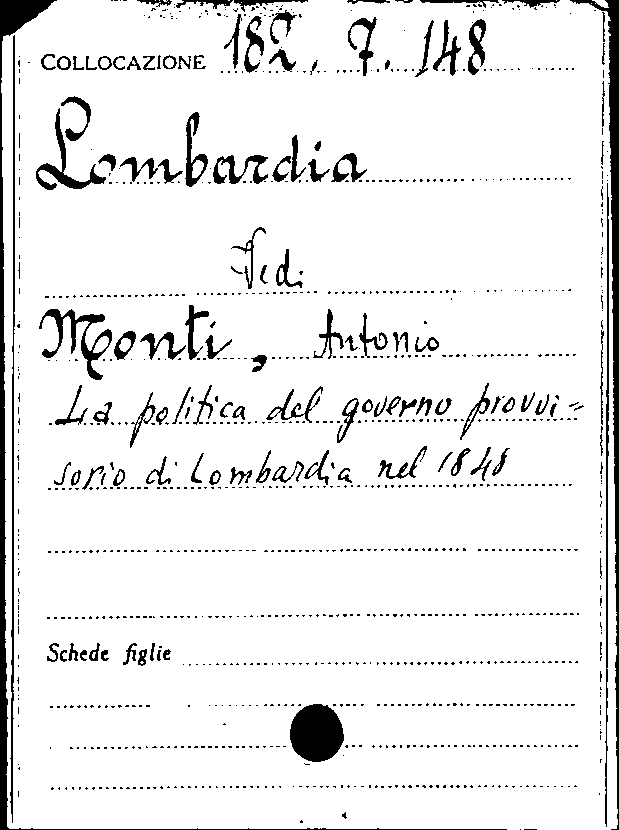 COLLOCAZIONE 182. 7. 148
Lombardia
Vedi
Monti, Antonio
La politica del governo provvi=
sorio di Lombardia nel 1848
Schede figlie